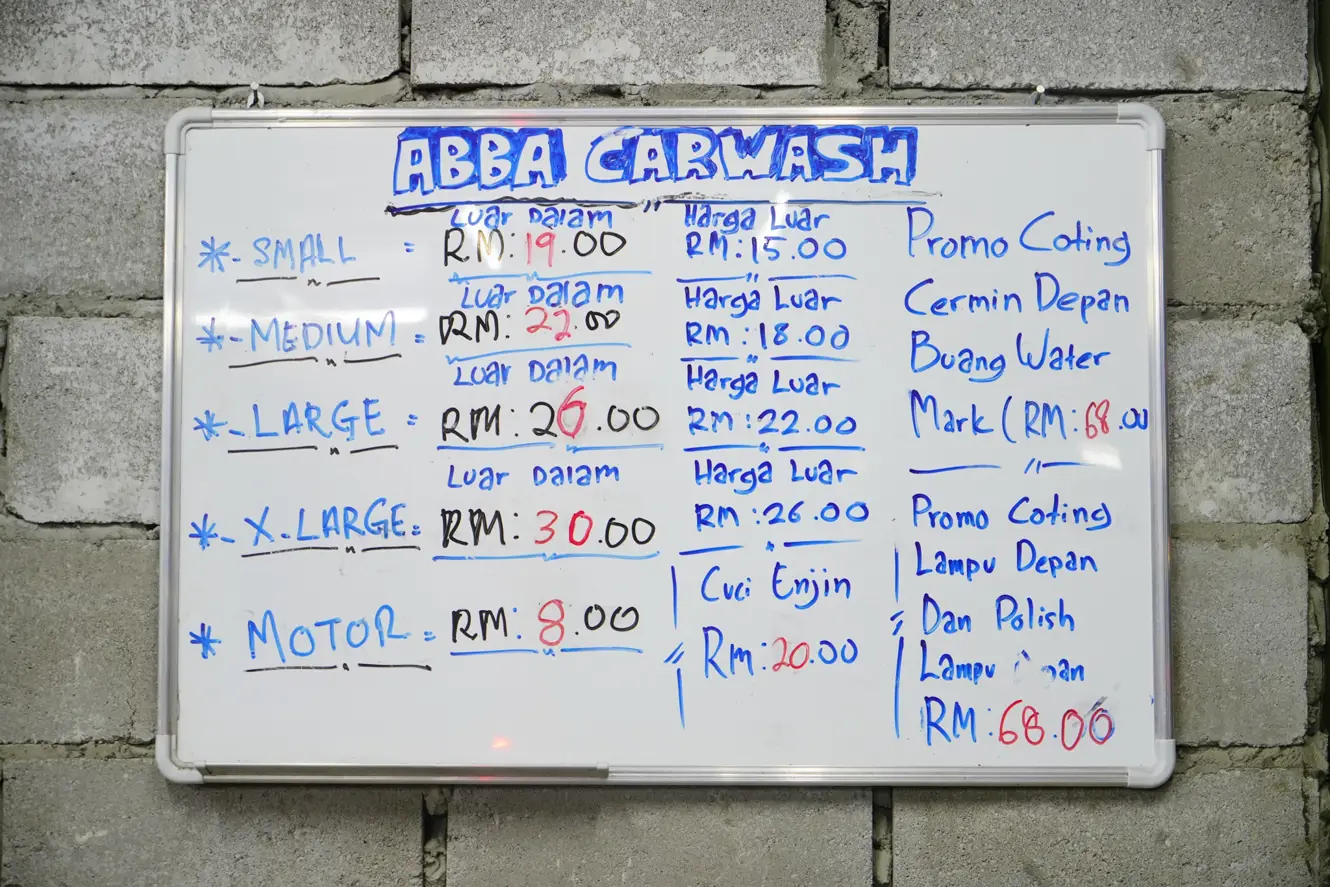 ABBA CARWASH
Luar Dalam
*- SMALL = RM: 19.00
Luar Dalam
*- MEDIUM = RM: 22.00
Luar Dalam
*- LARGE = RM: 26.00
Luar Dalam
*- X.LARGE = RM: 30.00
* MOTOR = RM: 8.00
Harga Luar
RM:15.00
Harga Luar
RM:18.00
Harga Luar
RM:22.00
Harga Luar
RM:26.00
Cuci Enjin
Rm:20.00
Promo Coting
Cermin Depan
Buang Water
Mark (RM:68.00
Promo Coting
Lampu Depan
Dan Polish
Lampu
RM:68.00